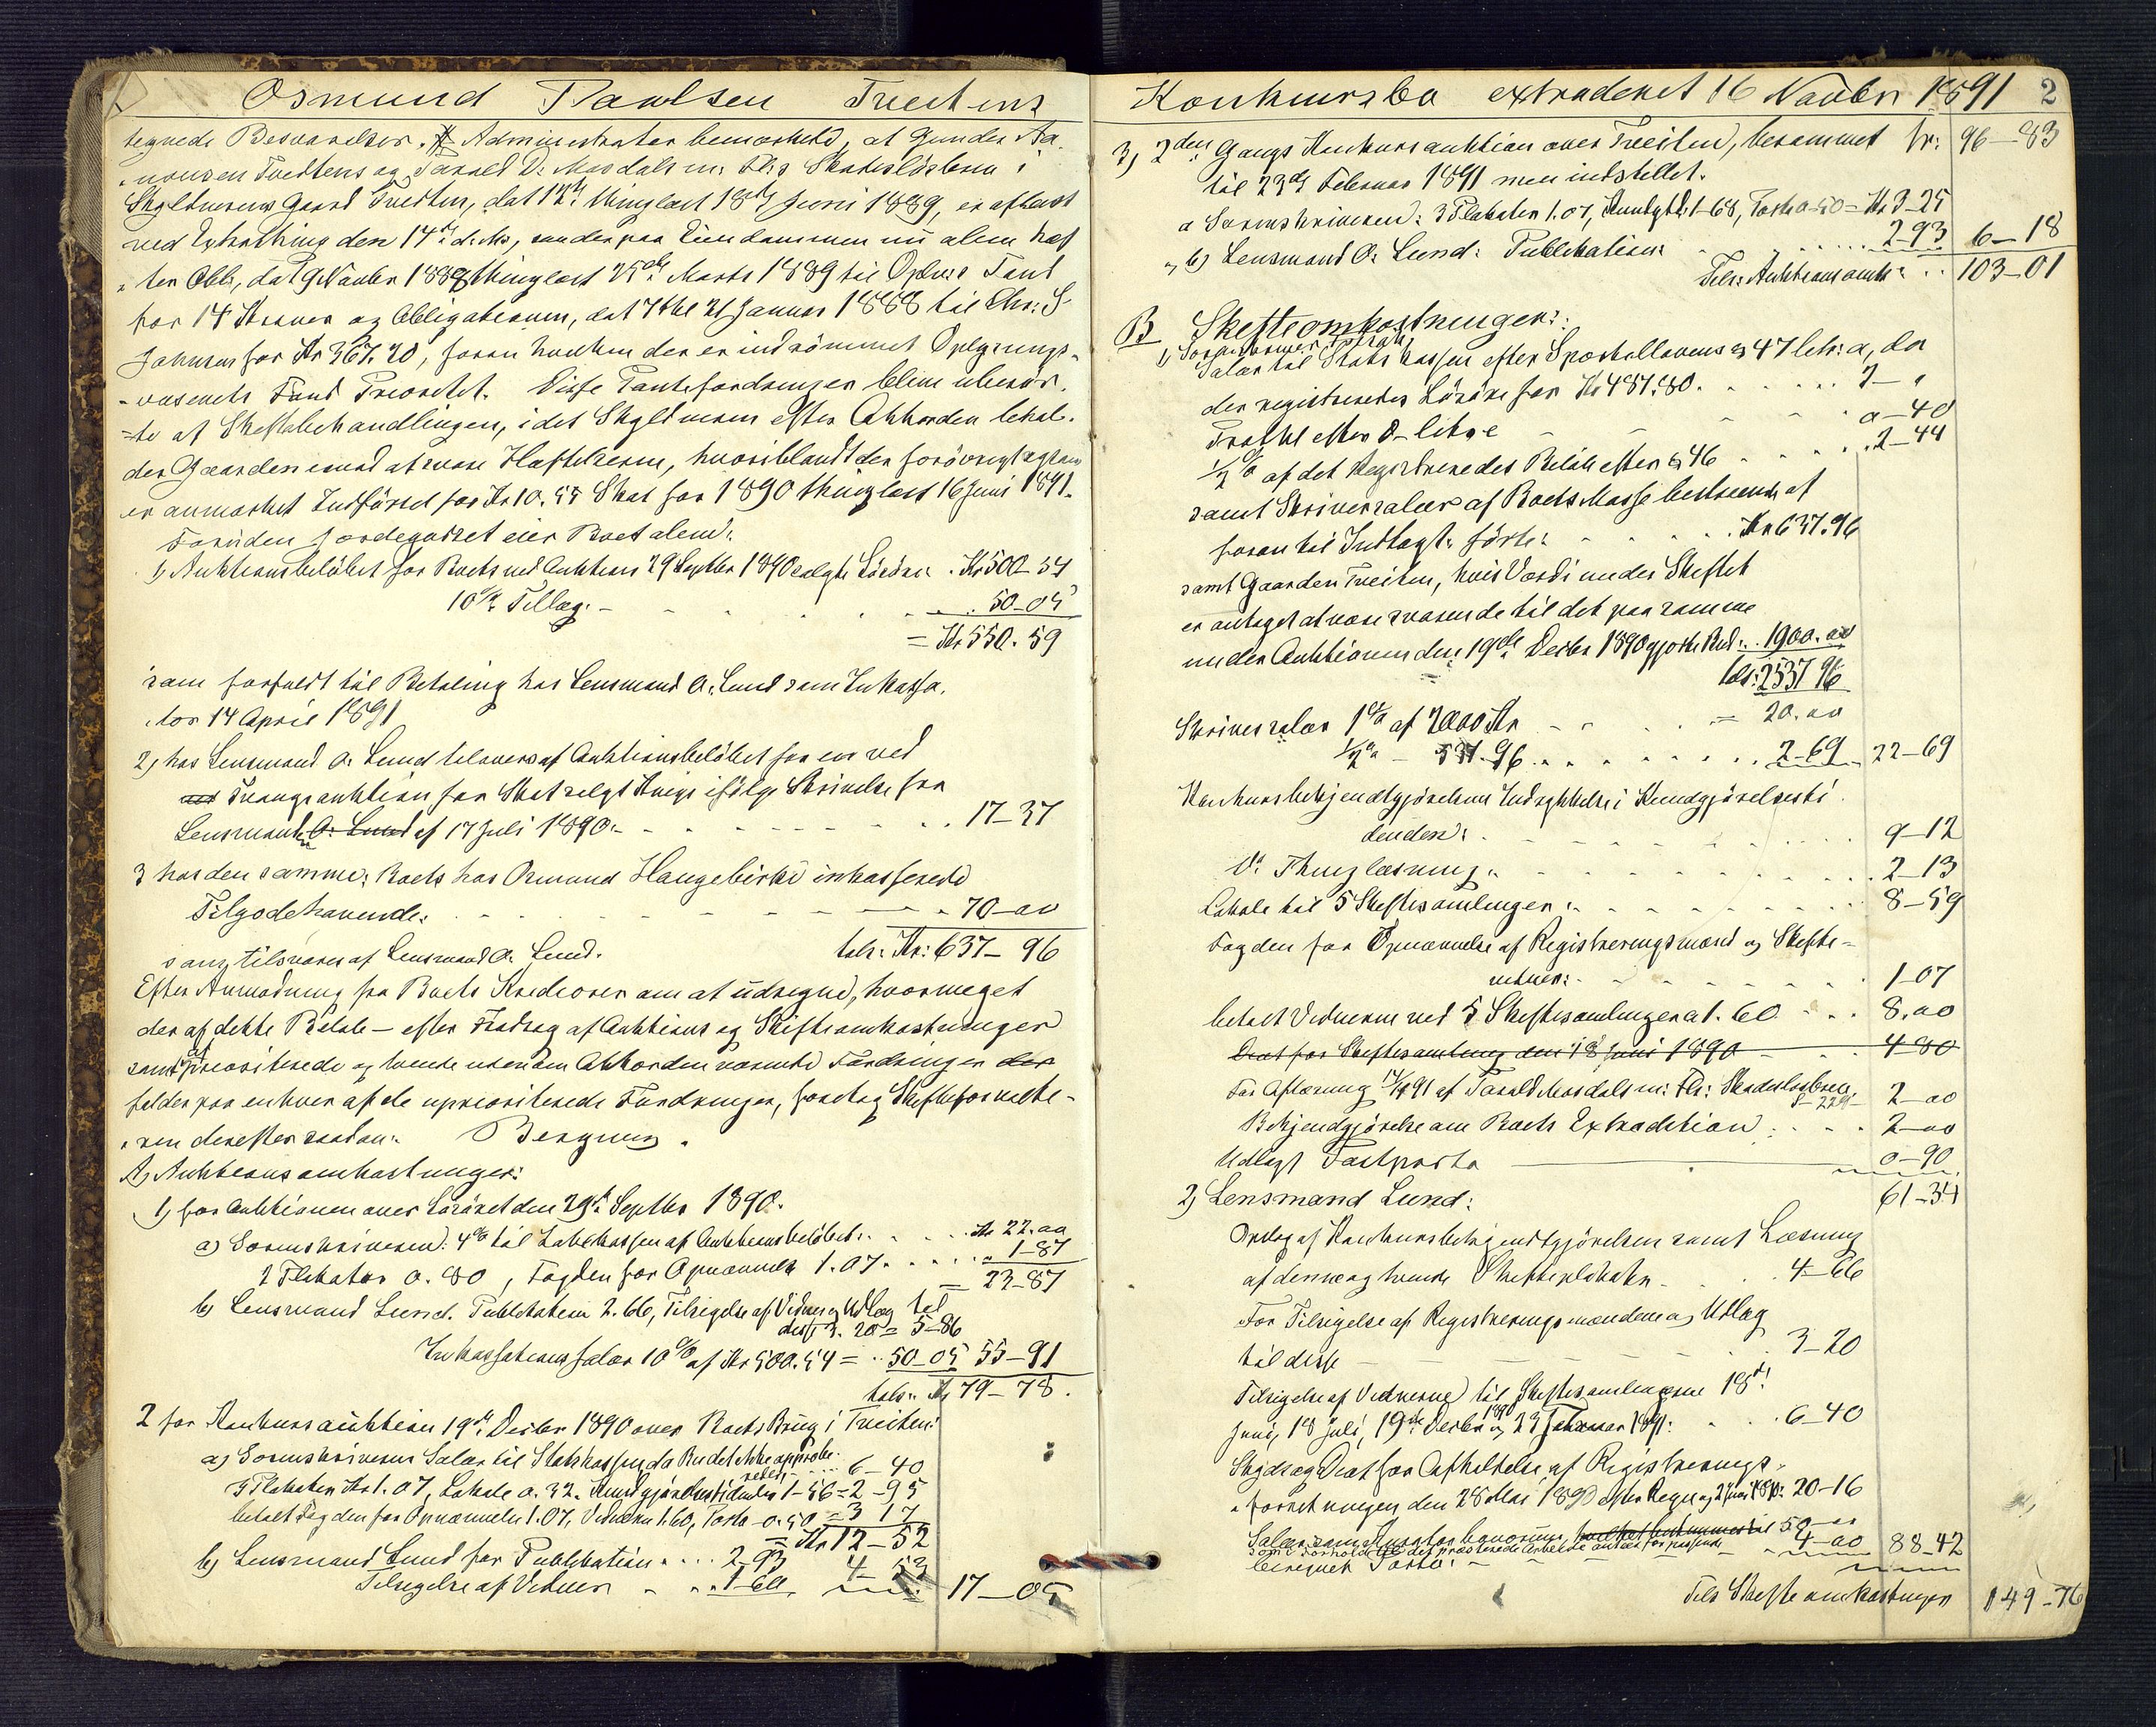 Osmund Paulsen Tveitens
tegnede Besvarelser. Administrator bemærkede, at Gunder Aa
nonsen Tvedtens og Tarald D. Mosdals m: Fl:s Skadesløsbrev i
Skyldnerens Gaard Tvedten, dat 12te thinglæst 18de Juni 1889, er aflæst
ved Extrathing den 14de d: M:, saa der paa Eiendommen nu alene hef
ter Obl:, dat 9 Novbr 1888 thinglæst 25de Marts 1889 til Oplys: Fond
for 14 Kroner og Obligationen, dat 7 Okt 21 Januar 1888 til Chr: S
Johnsen for Kr 367. 20, foran hvilken der er indrømmet Oplysnings-
væsenets Fond Prioritet. Disse Pantefordringer blive uberør-
te af Skiftebehandlingen, idet Skyldneren efter Akkorden behol-
der Gaarden imod at være Hæftelserne, hvoriblandt der forøvrigt
er anmærket Indførsel for Kr 10. 55 Skat for 1890 thinglæst 16 Juni 1891.
Foruden Jordegodset eier Boet alene:
1) Auktionsbeløbet for Boets ved Auktion 29 Septbr 1890 solgte Løsøre: Kr 500-54
10% Tillæg: - 50-05
= Kr 550. 59
som forfaldt til Betaling hos Lensmand O. Lund som Inkassa-
tor 14 April 1891
2) hos Lensmand O. Lund tilovers af Auktionsbeløbet for en ved
ved Tvangsauktion for Skat solgt Kvige ifølge Skrivelse fra
Lensmand O. Lund af 17 Juli 1890: 17-37
3 hos den samme: Boets hos Osmund Haugebirke inkasserede
Tilgodehavende: 70-00
som tilsvares af Lensmand O. Lund. tils: Kr: 637-96
Efter Anmodning fra Boets Kreditorer om at udregne, hvormeget
der af dette Beløb - efter Fradrag af Auktions og Skifteomkostninger
samt af prioriterede og hvende udenom Akkorden værende Fordringer der
falder paa enhver af de uprioriterede Fordringer, foretog Skifteforvalte-
ren derefter saadan: Beregning.
A) Auktionsomkostninger:
1) for Auktionen over Løsøret den 29de Septbr 1890.
a) Sorenskriveren: 4% til Statskassen af Auktionsbeløbet: Kr 22. 00
2 Plakater 0. 80, Fogden for Opnævnelse 1. 07 1-87
= 23-87
b) Lensmand Lund. Publikation 2. 66, Tilsigelse af Vidner og Udlæg til
disse 3. 20 = 5-86
Inkassationssalær 10% af Kr 500. 54 = 50-05 55-91
tils: Kr 79-78.
2 for Konkursauktion 19de Decbr 1890 over Boets Brug i Tveiten:
a) Sorenskriveren Salær til Statskassen, da Budet ikke approbe-
redes 6-40
3 Plakater Kr 1. 07, Lokale 0. 32. Kundgjørelsestidende 1-56 = 2-95
betalt Fogden for Opnævnelse 1. 07, Vidnerne 1. 60, Porto 0. 50 = 3 17
= Kr 12-52
b) Lensmand Lund for Publikation 2-93
Tilsigelse af Vidner 1-60 4-53 17-05
Konkursbo extraderet 16 Novbr 1891 2
3) 2den Gangs Konkursauktion over Tveiten, berammet tr: 96-83
til 23de Februar 1891 men indstillet.
a Sorenskriveren: 3 Plakater 1. 07, Kundgt: 1-68, Porto 0-50 = Kr 3-25
b) Lensmand O. Lund: Publikation 2-93 6-18
Tils: Auktionsomk: 103-01
B Skifteomkostninger:
1) Sorenskriveren
Salær til Statskassen efter Sportellovens § 47 lit: a, da
der registreredes Løsøre for Kr 487. 80. 2-"
Protokl efter D-litr e 0-40
½% af det Registreredes Beløb efter § 46 2-44
samt Skriversalær af Boets Masse bestaaende af
foran til Indtægt førte: Kr 637. 96
samt Gaarden Tveiten, hvis Værdi under Skiftet
er antaget at være svarende til det paa samme
under Auktionen den 19de Decbr 1890 gjorte Bud: 1900. 00
tils: 2537 96
Skriversalær 1% af 2000 Kr = 20. 00
½% - 537. 96 2-69 22-69
Konkursbekjendtgjørelsens Indrykkelse i Kundgjørelsesti
denden: 9-12
D: Thinglæsning: 2-13
Lokale til 5 Skiftesamlinger: 8-59
Fogden for Opnævnelse af Registreringsmænd og Skifte-
vidner: 1-07
betalt Vidnerne ved 5 Skiftesamlinger a 1. 60 8. 00
Diæt for Skiftesamling den 18 Juni 1890 4 80
For Aflæsning 14/4 91 af Tarald Mosdals m: Fl: Skadesløsbrev 2-00
Bekjendtgjørelse om Boets Extradition 2-00
Udlagt Postporto 0-90
61-34
2) Lensmand Lund:
Opslag af Konkursbekjendtgjørelsen samt Læsning
af denne og hvende Skifteplakater 4-66
For Tilsigelse af Registreringsmændene og Udlæg
til disse 3-20
Tilsigelse af Vidnerne til Skiftesamlingerne 18de
Juni, 18 Juli, 19de Decbr 1890 og 23 Februar 1891: 6-40
Skyds og Diæt for Afholdelse af Registrerings-
forretningen den 28 Mai 1890 efter Regn: 20-16
Salær som Kurator bonorum, 50 00
beregnet Porto: 4-00 88-42
Tils Skifteomkostninger 149-76